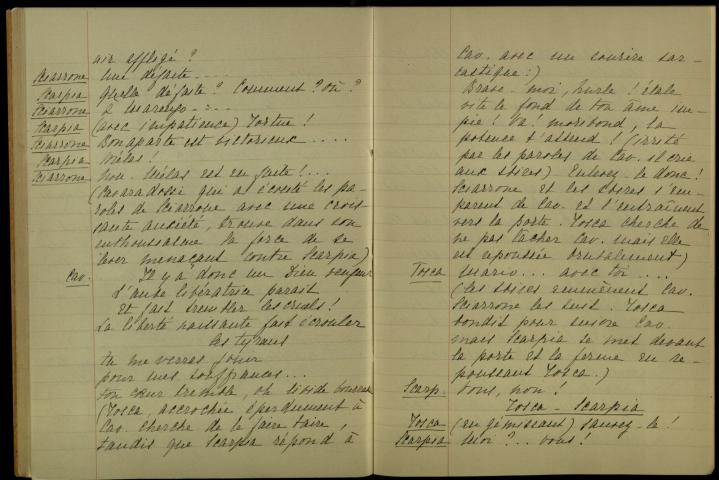 air affligé ?
Sciarrone Une défaite ....
Scarpia Quelle défaite ? Comment ? Où ?
Sciarrone à Marengo -:-
Scarpia (avec impatience) Tortue !
Sciarrone Bonaparte est victorieux ....
Scarpia Mélas !
Sciarrone Non. Mélas est en fuite !...
(Cavaradossi qui a écouté les pa-
roles de Sciarrone avec une crois-
sante anxiété, trouve dans son
enthousiasme la force de se
lever menaçant contre Scarpia)
Cav. Il y a donc un Dieu vengeur
L'aube libératrice parait
Et fait trembler les cruels !
La liberté naissante fait écrouler
les tyrans
tu me verras jouir
pour mes souffrances...
ton cœur tremble, oh livide bourreau
(Tosca, accrochée éperdument à
Cav. cherche de le faire taire,
tandis que Scarpia répond à
Cav. avec un sourire sar-
castique :)
Brave-moi, hurle ! étale
vite le fond de ton âme im-
pie ! Va ! moribond, la
potence t'attend ! (irrité
par les paroles de Cav. il crie
aux sbires) Enlevez-le donc !
Sciarrone et les sbires s'em-
parent de Cav. et l'entraînent
vers la porte. Tosca cherche de
ne pas lâcher Cav. mais elle
est repoussée brutalement)
Tosca Mario... avec toi ....
(Les sbires emmènent Cav.
Sciarrone les suit. Tosca
bondit pour suivre Cav.
mais Scarpia se met devant
la porte et la ferme en re-
poussant Tosca.)
Scarp. Vous, non !
Tosca - Scarpia
Tosca (en gémissant) Sauvez-le !
Scarpia Moi ?.. Vous !